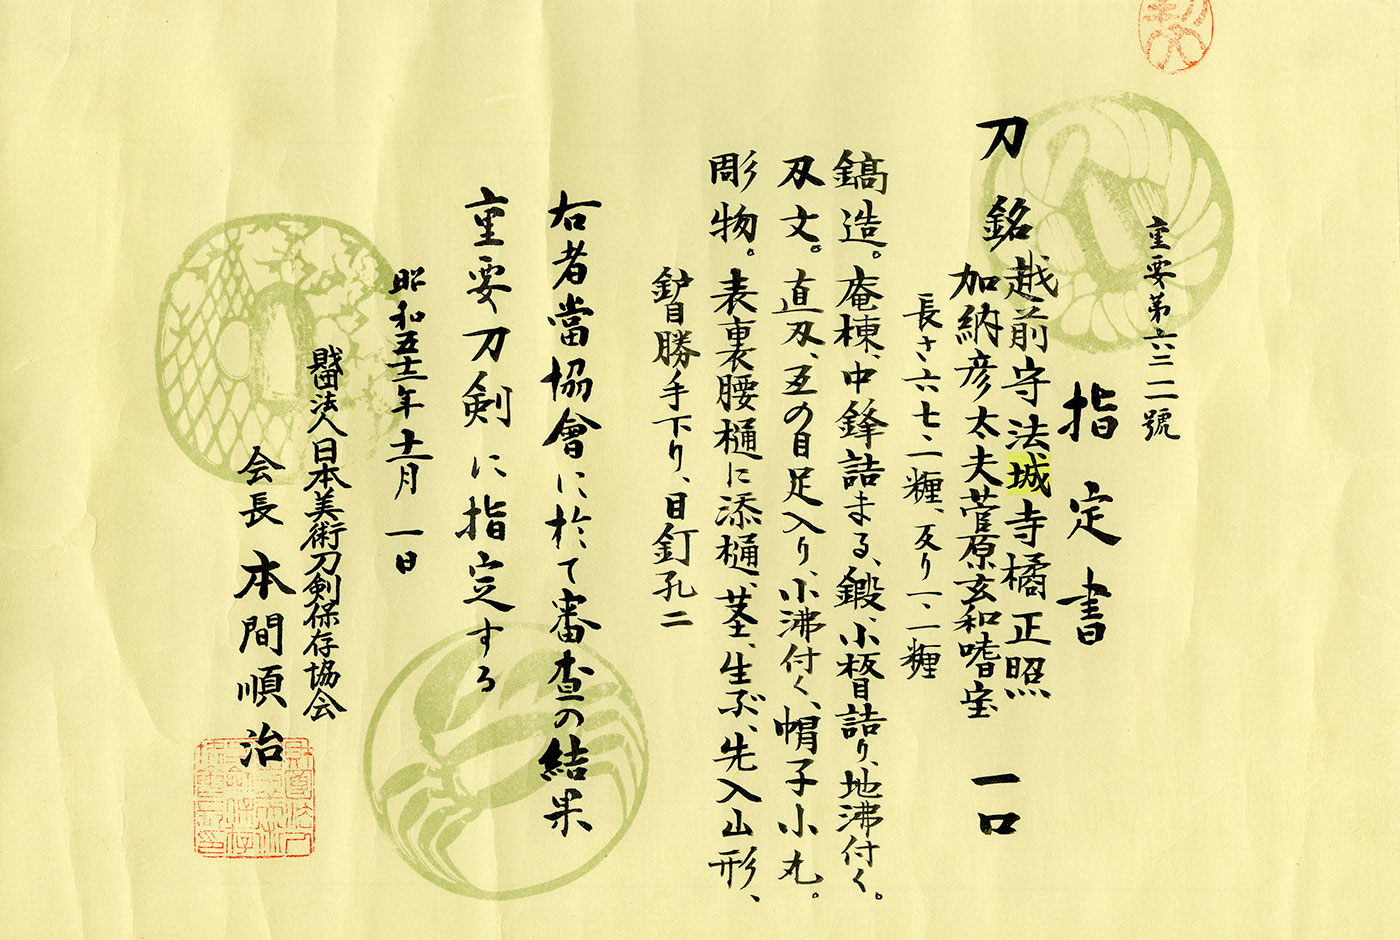 重要第六三一一號
指定書
刀 銘 越前守法城寺橘正照 一口
加納彦太夫菅原玄和嗜宝
長さ六七・二糎、反り一・二糎
鎬造。庵棟、中鋒詰まる、鍛、小板目詰り、地沸付く。
刃文。直刃、互の目足入り、小沸付く、帽子小丸。
彫物。表裏腰樋に添樋、茎、生ぶ、先入山形、
鑢目勝手下り、目釘孔二
右者當協會に於て審査の結果
重要刀剣に指定する
昭和五十二年十一月一日
財団法人日本美術刀剣保存協会
会長 本間順治